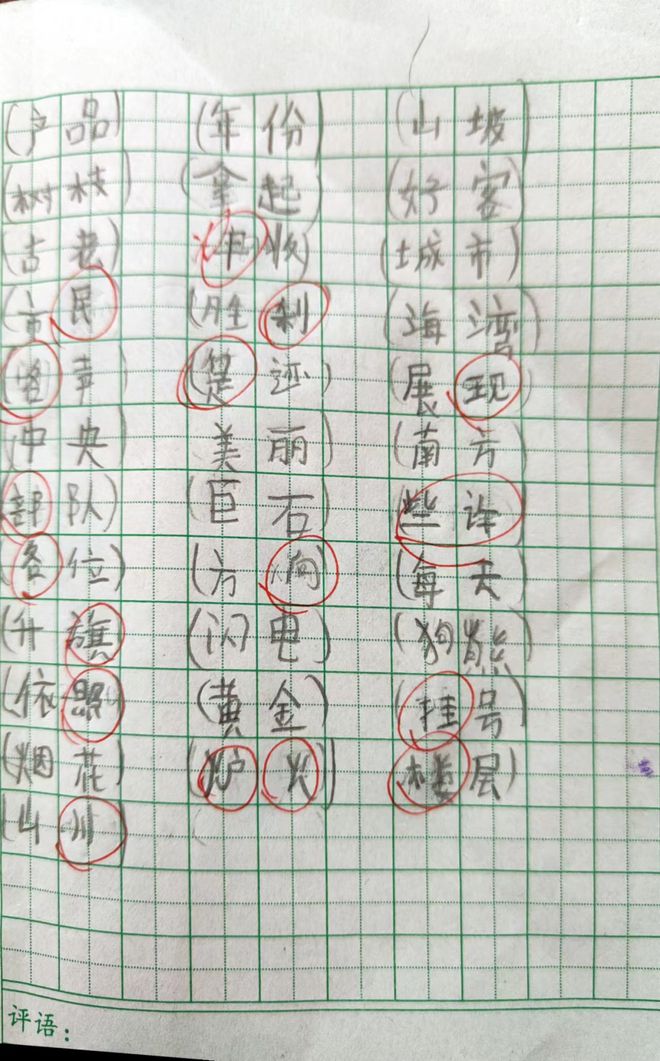 (产品) (年份) (山坡)
(树枝) (拿起) (好客)
(古老) 收) (城市)
(市民) (胜利) (海湾)
声) (足迹) (展现)
(中央 美丽 (南方
部队) (巨石) 些许
(各位) (方向 (每天
(升旗 (闪电) (狗熊
(依照 (黄金) (挂号
(烟花) (炉火) (楼层)
(山川)
评语：